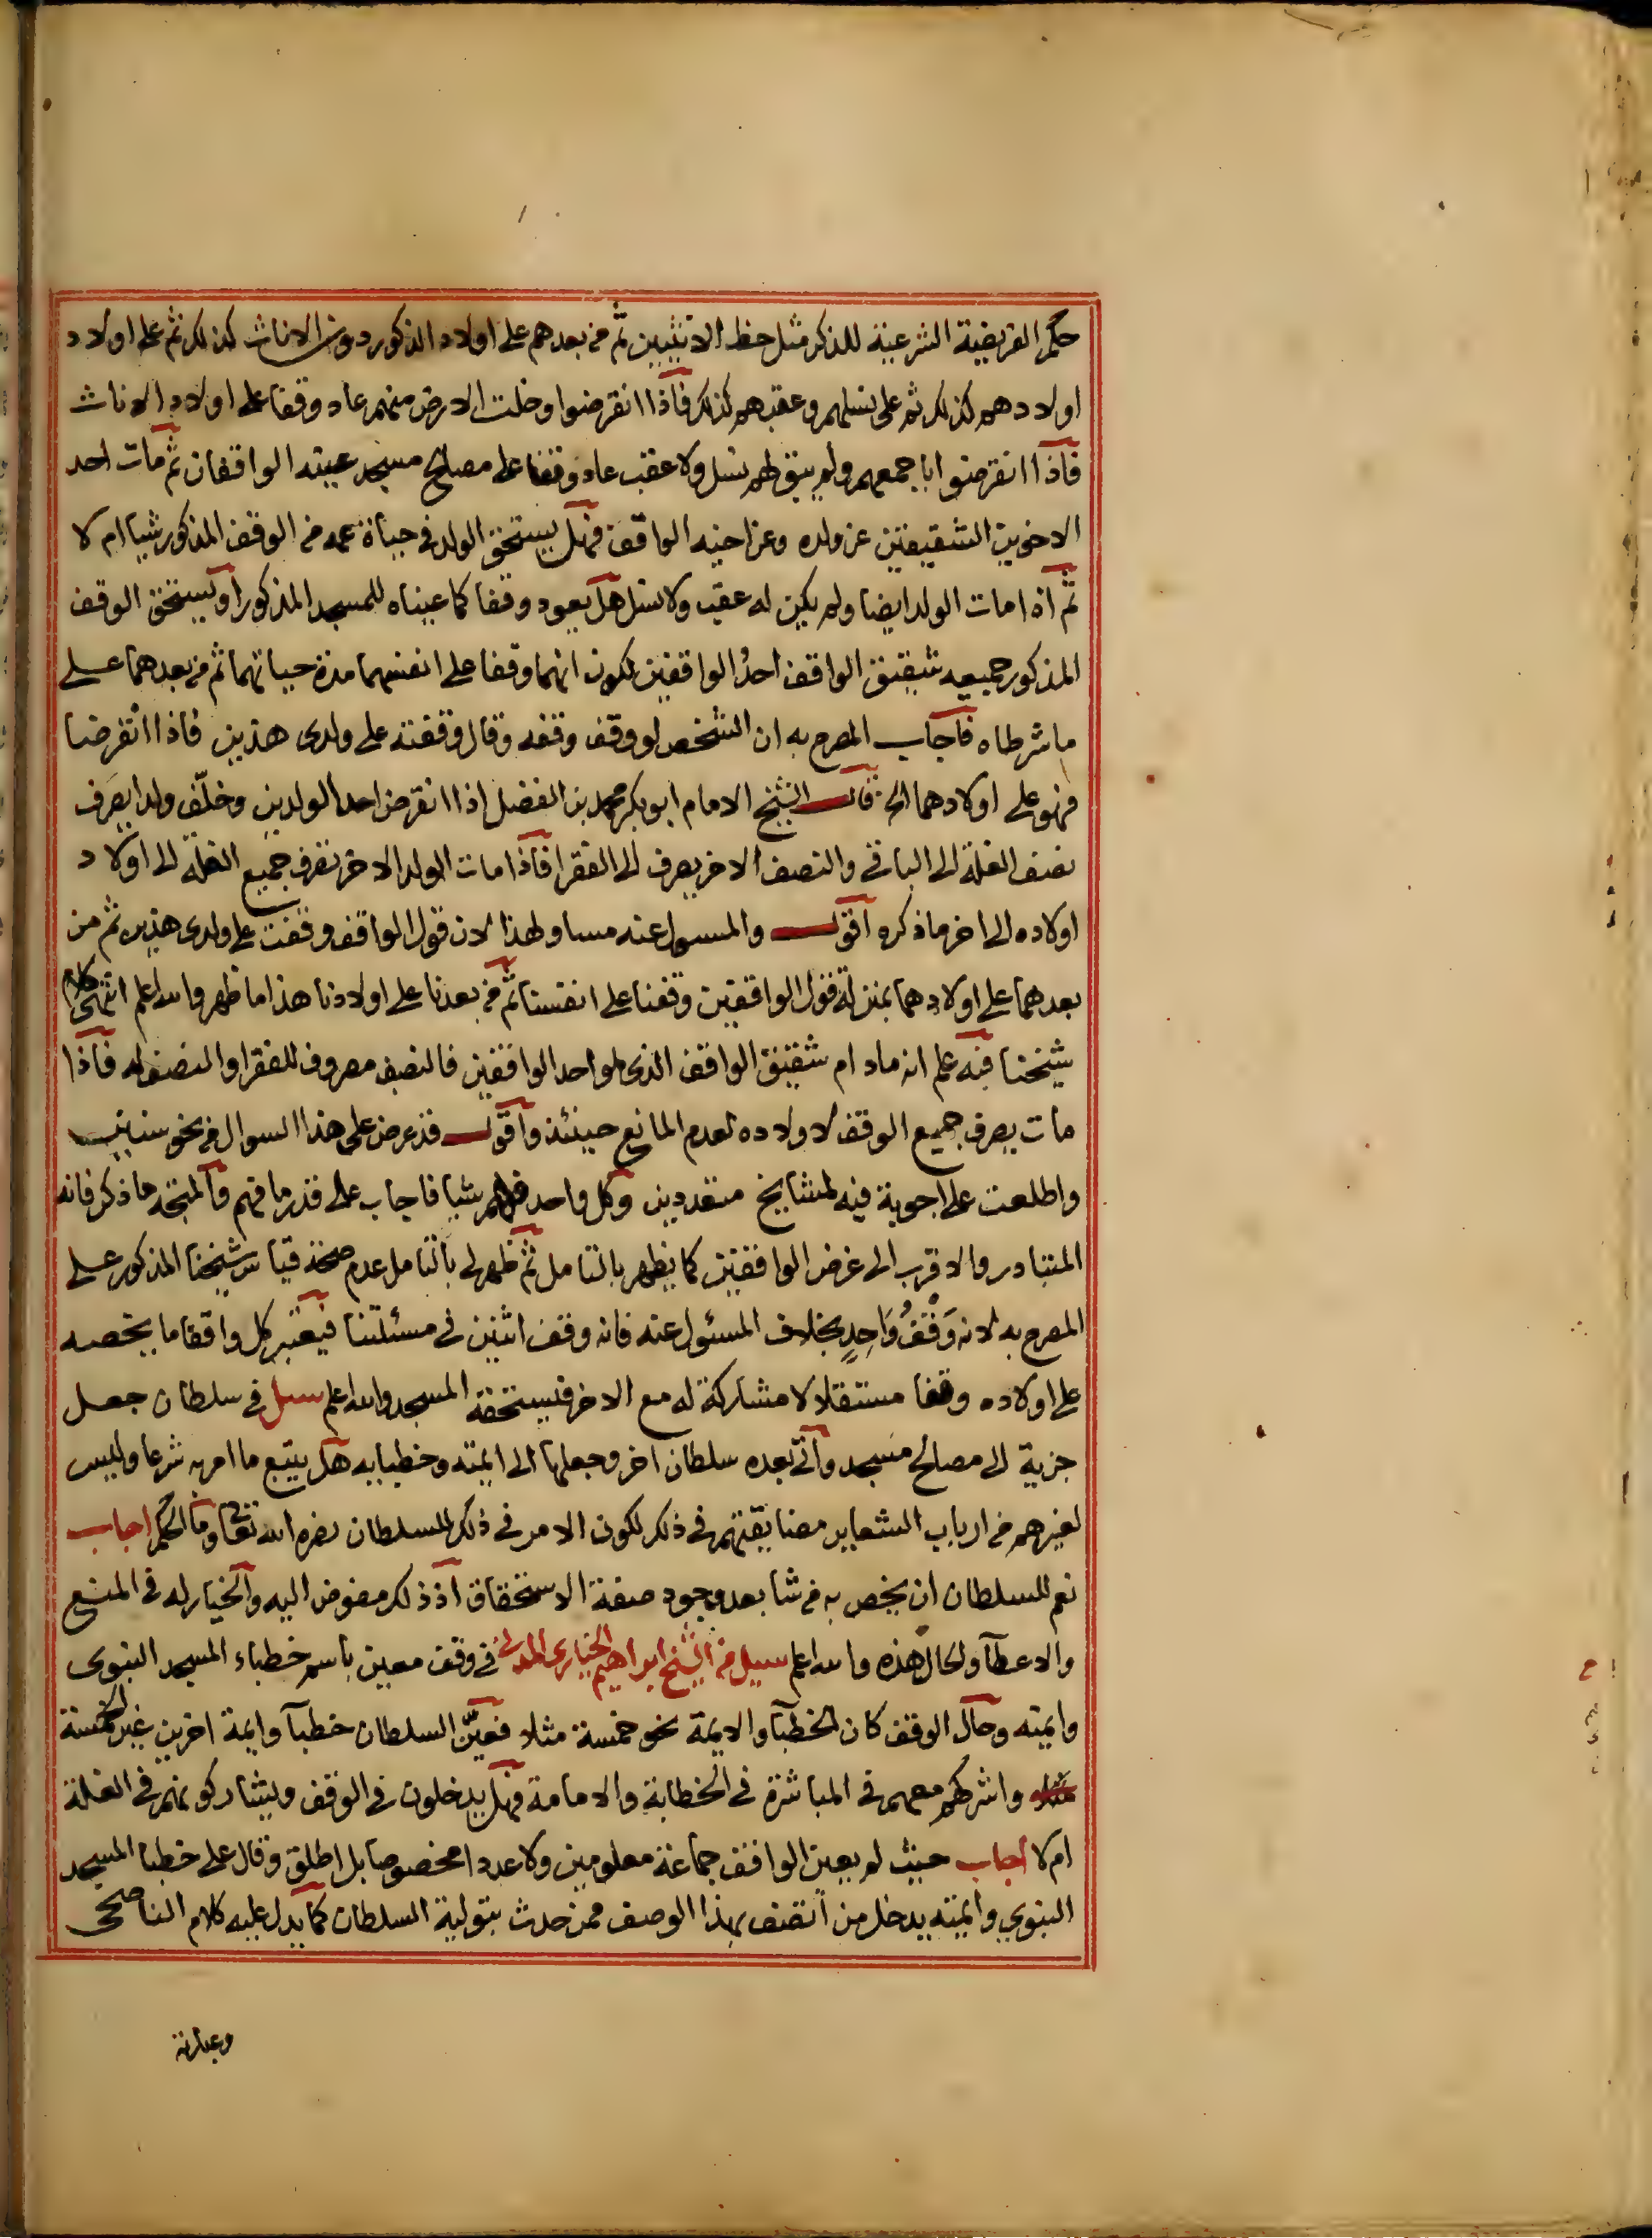 حكم الفريضة الشرعية للذكر مثل حظ الانثيين ثم من بعدهم على اولاد الذكور دون الاناث كذلك ثم على اولاد
اولادهم كذلك ثم على نسلهم وعقبهم كذلك فاذا انقرضوا وخلت الارض منهم عاد وقفا على اولاد الاناث
فاذا انقرضوا باجمعهم ولم يبق لهم نسل ولا عقب عاد وقفا على مصالح مسجد عينه الواقفان ثم مات احد
الاخوين الشقيقين عن ولده وعن اخيه الواقف فهل يستحق الولد في حياة عمه من الوقف المذكور شيا ام لا
ثم اذا مات الولد ايضا ولم يكن له عقب ولا نسل هل يعود وقفا كما عيناه للمسجد المذكور او يستحق الوقف
المذكور جميعه شقيق الواقف احد الواقفين لكون انهما وقفا على انفسهما مدة حياتهما ثم من بعدهما على
ما شرطاه فاجاب المصرح به ان الشخص لو وقف وقفه وقال وقفته على ولدى هذين فاذا انقرضا
فهو على اولادهما الخ قال الشيخ الامام ابو بكر محمد بن الفضل اذا انقرض احد الولدين وخلّف ولدا يصرف
نصف الغلة الى الباقي والنصف الاخر يصرف الى الفقرا فاذا مات الولد الاخر تصرف جميع الغلة الى اولاد
اولاده الى اخر ما ذكره اقول والمسول عنه مساو لهذا لان قول الواقف وقفت على ولدى هذين ثم من
بعدهما على اولادهما بمنزلة قول الواقفين وقفنا على انفسنا ثم من بعدنا على اولادنا هذا ما ظهر والله اعلم انتهى كلام
شيخنا فبه علم انه ما دام شقيق الواقف الذى هو احد الواقفين فالنصف مصروف للفقرا والنصف له فاذا
مات يصرف جميع الوقف لاولاده لعدم المانع حينئذ واقول قد عرض على هذا السوال من نحو سنتين
واطلعت على اجوبة فيه لمشايخ متعددين وكل واحد فهم شيا فاجاب على قدر ما فهم والمتجه ما ذكر فانه
المتبادر والاقرب الى غرض الواقفين كما يظهر بالتامل ثم ظهر لى بالتامل عدم صحة قياس شيخنا المذكور على
المصرح به لانه وَقْفُ وَاحِدٍ بخلاف المسئول عنه فانه وقف اثنين في مسئلتنا فيعتبر كل واقفا ما يخصه
على اولاده وقفا مستقلا لا مشاركة له مع الاخر فيستحقه المسجد والله اعلم سئل في سلطان جعل
جزية الى مصالح مسجد واتى بعده سلطان اخر وجعلها الى ايمته وخطبايه هل يتبع ما امر به شرعا وليس
لغيرهم من ارباب الشعاير مضايقتهم في ذلك لكون الامر في ذلك للسلطان نصره الله تعالى وما الحكم اجاب
نعم للسلطان ان يخص به من شا بعد وجود صفة الاستحقاق اذ ذلك مفوض اليه والخيار له في المنع
والاعطآ والحال هذه والله اعلم سيل من الشيخ ابراهيم الخيارى المدنى في وقف معين باسم خطباء المسجد النبوى
وايمته وحال الوقف كان الخطبآ والايمة نحو خمسة مثلا فعيّن السلطان خطبآ وايمة اخرين غير الخمسة
واشركهم معهم في المباشرة في الخطابة والامامة فهل يدخلون في الوقف ويشاركونهم في الغلة
ام لا اجاب حيث لم يعين الواقف جماعة معلومين ولا عددا مخصوصا بل اطلق وقال على خطبا المسجد
النبوي وايمته يدخل من اتصف بهذا الوصف ممن حدث بتولية السلطان كما يدل عليه كلام الناصحى
وعبارته